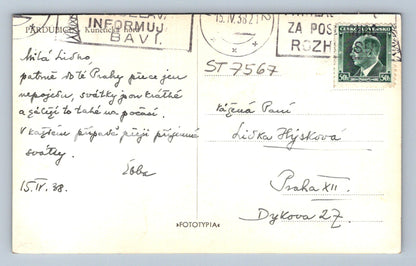 PARDUBICE Kunětická hora
INFORMUJ
BAVÍ.
15.IV.38
ZA POS
ROZH
ČESKOSLOVENSKO
50h 50h
ST 7567
Milá Lidko,
patrně do té Prahy přece jen
nepojedu, svátky jsou krátké
a záleží to také na počasí.
V každém případě přeji příjemné
svátky.
15.IV.38.
Vážená Paní
Lidka Hýsková
Praha XII.
Dykova 27.
»FOTOTYPIA«